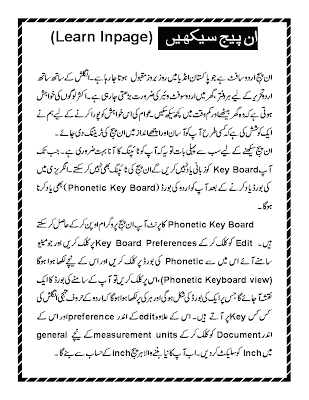 ان پیج سیکھیں (Learn Inpage)
ان پیج اردو سافٹ ہے جو پاکستان انڈیا میں روز بروز مقبول ہوتا جا رہا ہے۔ انگلش کے ساتھ ساتھ
اردو تحریر کے لیے ہر دفتر، گھر میں اردو سوفٹ وئیر کی ضرورت بڑھتی جا رہی ہے۔ اکثر لوگوں کی خواہش
ہوتی ہے کہ وہ گھر بیٹھے اور کم وقت میں کچھ سیکھ لیں۔ عوام کی اس خواہش کو پورا کرنے کے لیے ہم نے
ایک کوشش کی ہے کہ کسی طرح آپ کو آسان اور اچھے انداز میں ان پیج کی ٹریننگ دی جائے۔
ان پیج سیکھنے کے لیے سب سے پہلی بات تو یہ کہ آپ کو ٹائپنگ کا آنا بہت ضروری ہے۔ جب تک
آپ Key Board کو زبانی یاد نہیں کریں گے ان پیج کی ٹائپنگ بھی نہیں کر سکتے۔ انگریزی میں
کی بورڈ یاد کرنے کے بعد آپ کو اردو کی بورڈ (Phonetic Key Board) بھی یاد کرنا
ہوگا۔
Phonetic Key Board کا پرنٹ آپ ان پیج پروگرام اوپن کر کے حاصل کر سکتے
ہیں۔ Edit کو کلک کر کے Key Board Preferences پر کلک کریں اور جو مینیو
سامنے آئے اس میں سے Phonetic کی بورڈ پر کلک کریں اور اس کے نیچے لکھا ہوا ہوگا
(Phonetic Keyboard view)، اس پر کلک کریں تو آپ کے سامنے کی بورڈ کا ایک
نقشہ آ جائے گا جس پر ایک کی بورڈ کی شکل ہوگی اور ہر کی پر لکھا ہوا ہوگا کہ اردو کے حروف تہجی انگلش کی
کس کس Key پر آتے ہیں۔ اس کے علاوہ edit کے اندر preference اور اس کے
اندر Document کو کلک کر کے measurement units کے نیچے general
میں Inch کو سلیکٹ کر دیں۔ اب آپ کا بنایا بننے والا ہر پیج inch کے حساب سے بنے گا۔